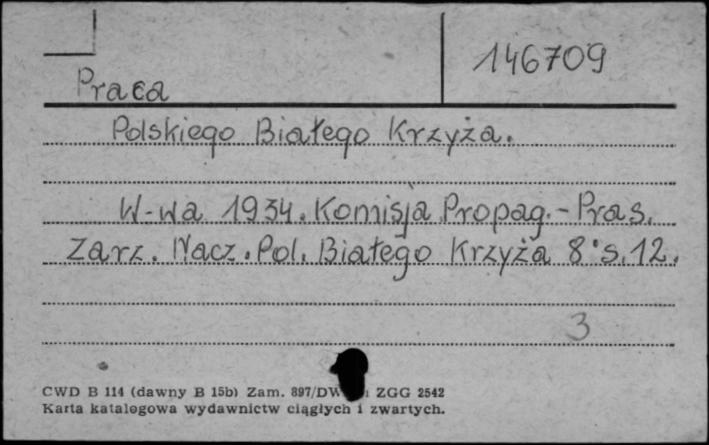 146709
Praca
Polskiego Białego Krzyża.
W-wa 1934. Komisja Propag.-Pras.
Zarz. Nacz. Pol. Białego Krzyża 8° s. 12.
3
CWD B 114 (dawny B 15b) Zam. 897/DW ZGG 2542
Karta katalogowa wydawnictw ciągłych i zwartych.